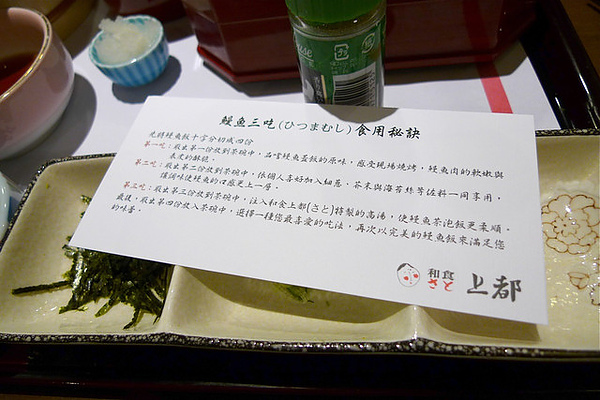 鰻魚三吃(ひつまむし)食用秘訣
先將鰻魚飯十字分切成四份
第一吃：取出第一份放到茶碗中，品嚐鰻魚蓋飯的原味，感受現場燒烤，鰻魚肉的軟嫩與
表皮的酥脆。
第二吃：取出第二份放到茶碗中，依個人喜好加入細蔥、芥末與海苔絲等佐料一同享用，
讓調味使鰻魚的口感更上一層。
第三吃：取出第三份放到茶碗中，注入和食上都(さと)特製的高湯，使鰻魚茶泡飯更柔順。
最後，取出第四份放入茶碗中，選擇一種您最喜愛的吃法，再次以完美的鰻魚飯來滿足您
的味蕾。
和食
さと
上都